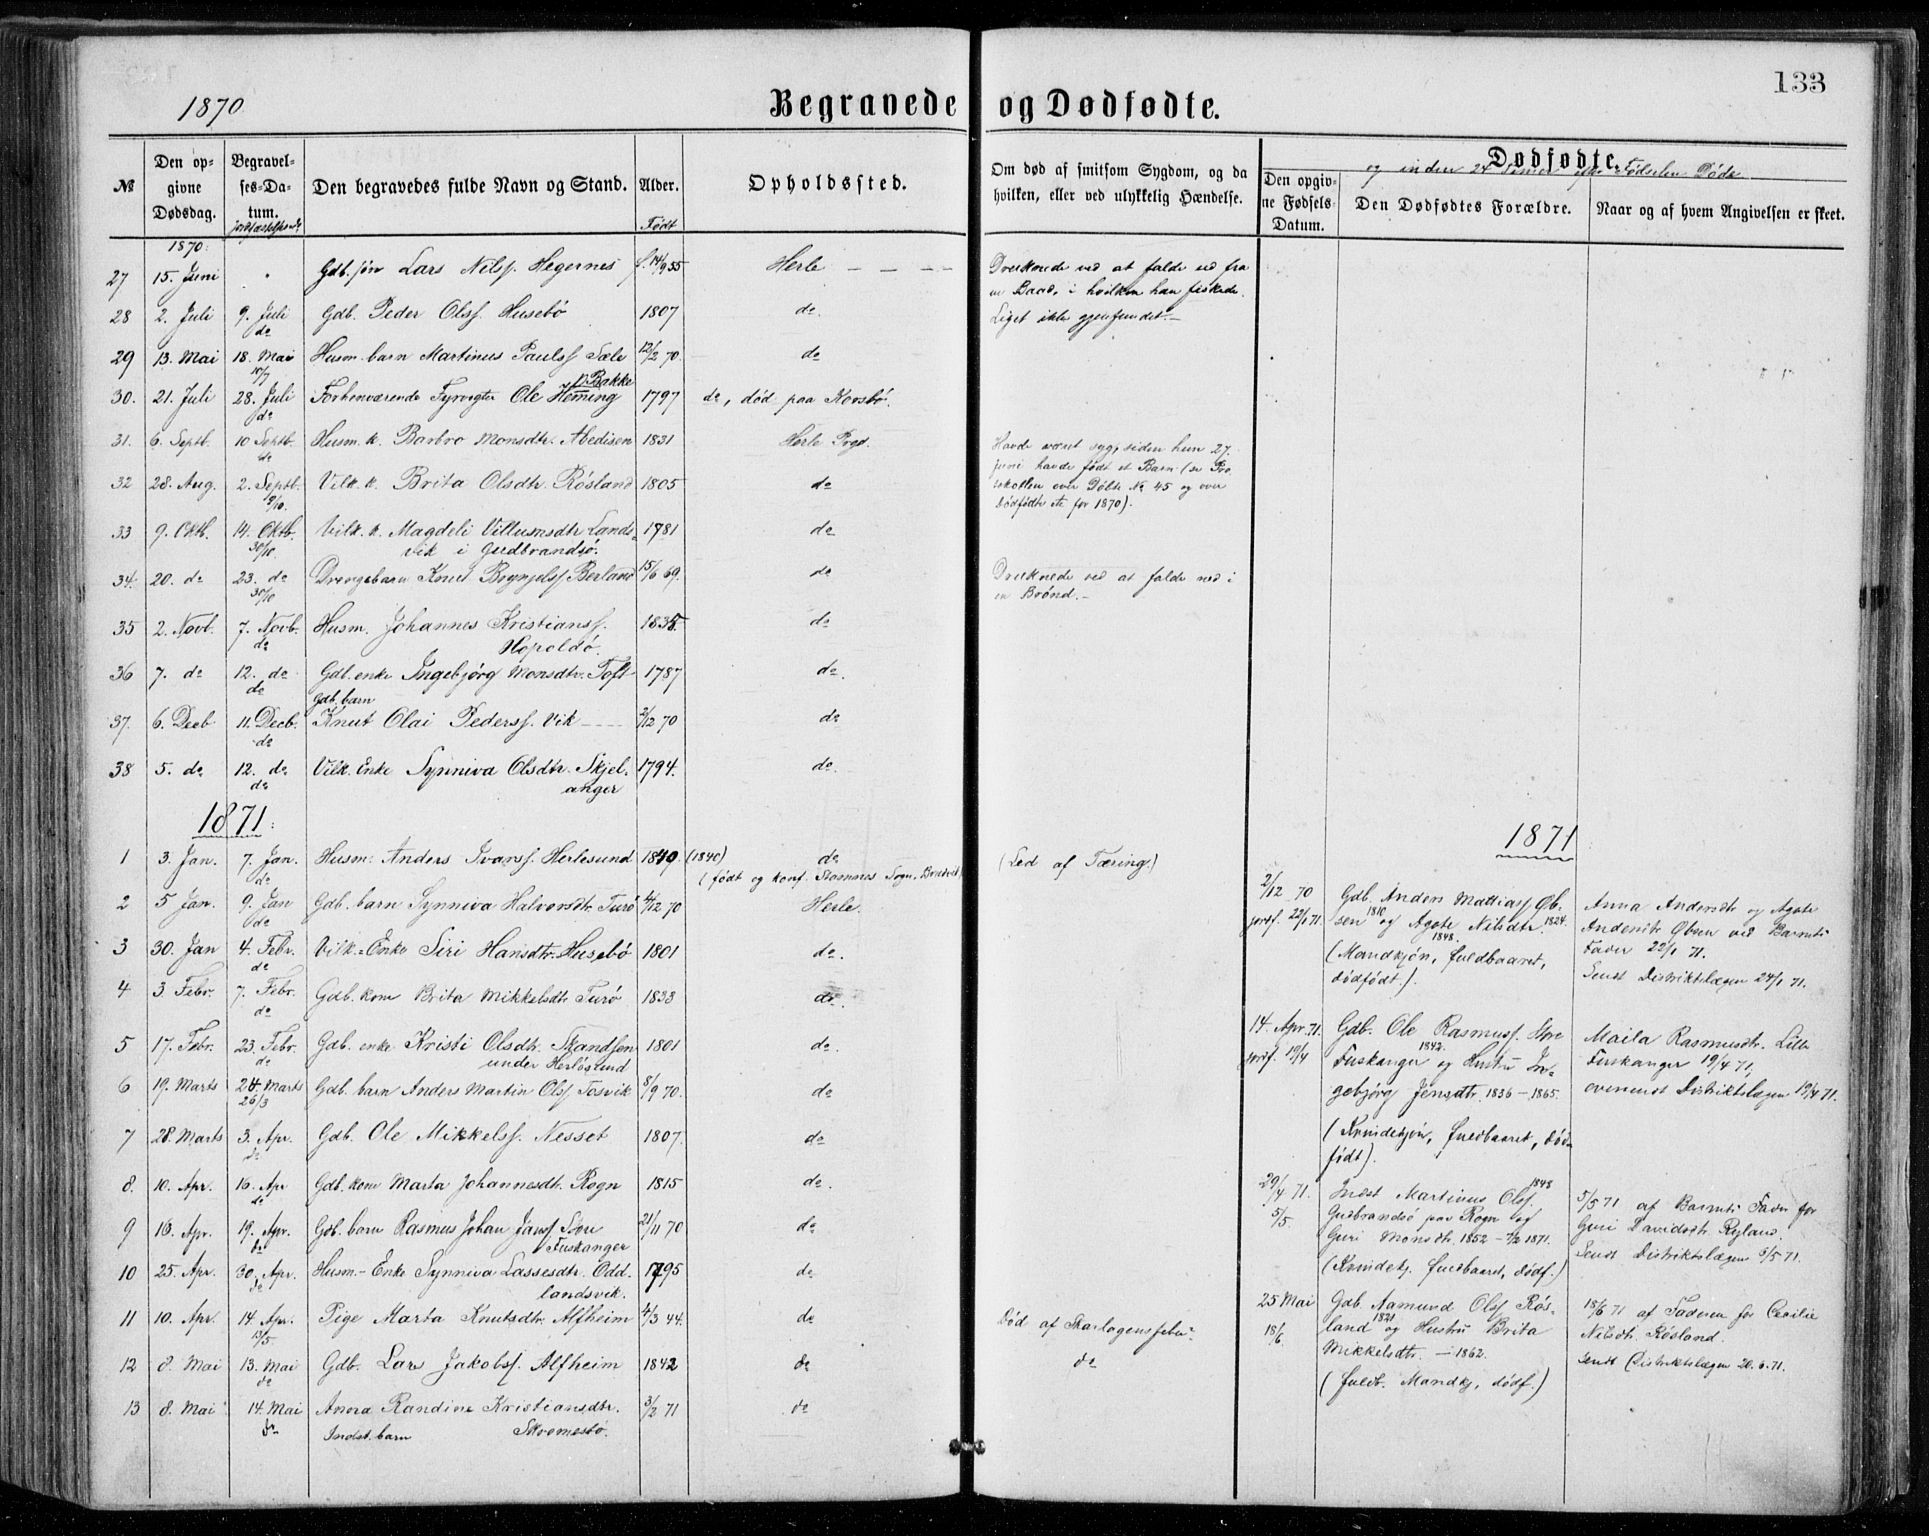 133
1870
Begravede og Dødfødte.
№
Den opgivne Dødsdag.
Begravelses-Datum.
Den begravedes fulde Navn og Stand.
Alder.
Født
Opholdssted.
Om død af smitsom Sygdom, og da hvilken, eller ved ulykkelig Hændelse.
Dødfødte
og inden 24 Timer efter Fødselen Døde
Den opgivne Fødsels-Datum.
Den Dødfødtes Forældre.
Naar og af hvem Angivelsen er skeet.
1870.
27 15. Juni Gdb. søn Lars Nilss. Hegernes f. 14/9 55 Herle
Druknede ved at falde ud fra
en Baad, i hvilken han fiskede.
28 2. Juli 9. Juli Gdb. Peder Olss. Husebö 1807 do
do
Liget ikke gjenfundet.
29 13. Mai 18. Mai Husm. barn Martinus Paulss. Sæle 12/2 70. do
10/7
p. Bakke
30. 21. Juli 28. Juli Forhenværende Fyrvogter Ole Heming 1797 do, död paa Korsbö.
do
31. 6. Septb. 10 Septb. Husm. k. Barbro Monsdtr. Abedisen 1831 Herle Prgd.
do
Havde været syg, siden hun 27.
juni havde født et Barn (se Pro
tokollen over Döbte No 45 og over
Dödfödte etc for 1870).
32 28. Aug. 2. Septb. Vilk. k. Brita Olsdtr. Rösland 1805 do
9/10.
33 9. Oktb. 14. Oktb. Vilk. k. Magdeli Villumsdtr. Lands- 1781 do
30/10. vik i Gudbrandsö.
34. 20. do 23. do Drengebarn Knut Brynjelss. Berland 15/6 69. do
30/10
Druknede ved at falde ned i
en Brönd.
35 2. Novb. 7. Novb. Husm. Johannes Kristianss. 1835. do
do Hopoldö.
36 7. do 12. do Gdb. enke Ingebjörg Monsdtr. Toft 1787 do.
do Gdb. barn
37. 6. Decb 11. Decb. Knut Olai Pederss. Vik 2/12 70 do
do
38 5. do 12. do Vilk. Enke Synniva Olsdtr. Skjel- 1794. do.
do anger
1871.
1 3. Jan. 7. Jan. Husm. Anders Ivarss. Herlesund 1840. (1840) do
do (födt og konf. Stamnes Sogn,
(Led af Tæring.)
2 5 Jan. 9. Jan Gdb. barn Synniva Halvorsdtr. Turö 4/12 70 Herle
do
3 30. Jan 4. Febr. Vilk. Enke Siri Hansdtr. Husebö 1801 do.
do
4 3. Febr. 7. Febr. Gdb. kone Brita Mikkelsdtr. Turö 1833 do.
do
5 17. Febr. 23. Febr. Gdb. enke Kristi Olsdtr. Skandsen 1801 do.
do under Herlösund
6 19. Marts 24 Marts Gdb. barn Anders Martin Olss. Tosvik 8/9 70. do
26/3
7 28. Marts 3. Apr. Gdb. Ole Mikkelss. Nesset 1807. do
do
8. 10. Apr. 16. Apr Gdb. kone Marta Johannesdtr. Rogn 1815 do.
do
9 16. Apr. 19. Apr. Gdb. barn Rasmus Johan Janss. Store 21/11 70 do
do Fuskanger
10 25. Apr. 30. Apr. Husm. Enke Synniva Lassesdtr. Odd- 1795 do
do landsvik.
11 10. Apr. 14. Apr. Pige Marta Knutsdtr. Alfheim 4/3 44. do
13/5
Död af Skarlagensfeber
12 8. Mai 13. Mai Gdb. Lars Jakobss. Alfheim 1842 do
do
do
13 8. Mai 14. Mai Anna Randine Kristiansdtr. 3/2 71 do
do Indst. barn Skvemesbö.
1871
2/12 70
jordf. 22/1 71.
Gdb. Anders Mattias Øb-
sen 1810 og Agate Nilsdtr. 1824.
1848.
(Mandkjön, fuldbaaret,
dödfödt.)
Anna Andersdtr. og Agate
Andersdtr. Øbsen ved Barnets
Fader 22/1 71.
Sendt Distriktslægen 24/1 71.
14. Apr. 71.
jordf. 19/4
Gdb. Ole Rasmuss. Store
1842.
Fuskanger og Hustru In-
gebjörg Jensdtr. 1836 – 1865.
(Kvindekjön, fuldbaaret, död-
födt).
Maila Rasmusdtr. Lille
Fuskanger 19/4 71,
oversendt Distriktslægen 19/4 71.
29/4 71.
5/5.
Indst Martinus Olss. 1848
Gudbrandsö paa Rogn og
Guri Monsdtr. 1852 – 7/2 1871.
(Kvindekj. fuldbaaret, dödf.)
5/5 71 af Barnets Fader for
Guri Davidsdtr. Ryland.
Sendt Distriktslægen 5/5 71.
25 Mai
18/6.
Gdb. Aamund Olss. Rös-
land 1821 og Hustru Brita
Mikkelsdtr. – 1862.
(fuldb. Mandkj, dödf.)
18/6 71 af Faderen for Cecilie
Nilsdtr. Rösland.
Sendt Distriktslægen 20.6.71.